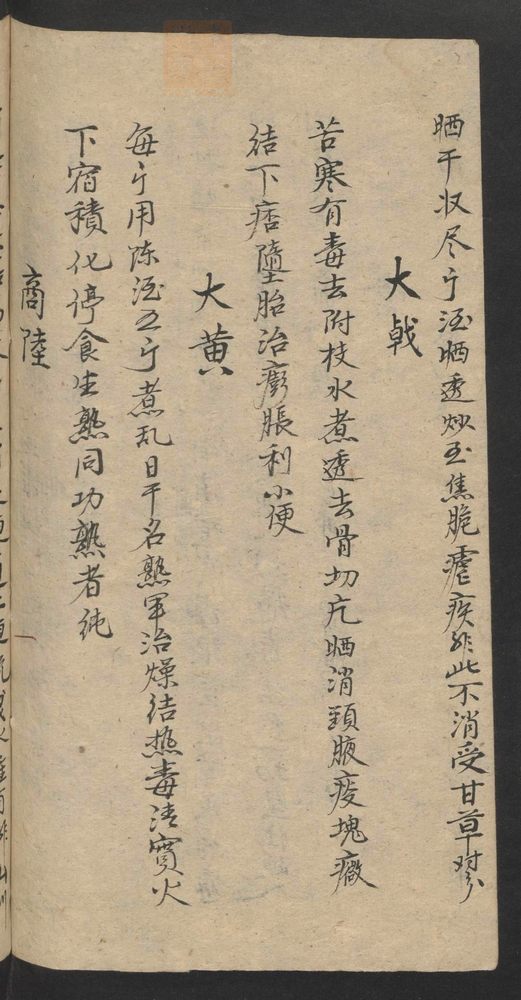 晒干收尽斤酒晒透炒至焦脆瘧疾非此不消受甘草
大戟
苦寒有毒去附枝水煮透去骨切片晒消頸腋痰塊癥
结下痞墮胎治膨脹利小便
大黄
每斤用陈酒五斤煮乱日干名熟军治燥结热毒清實火
下宿積化停食生熟同功熟者純
商陸